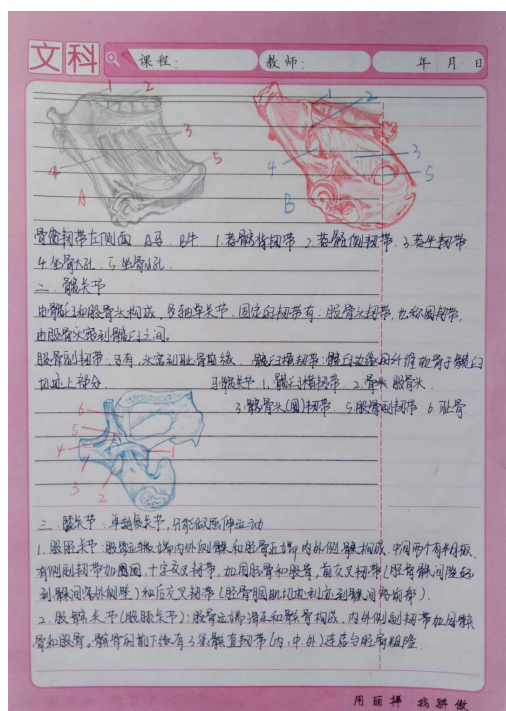 文科 课程: 教师: 年 月 日
1 2
3
4
5
A
1
2
3
4
5
B
骨盆韧带左侧面 A马. B牛 1.荐髂背韧带 2.荐髂侧韧带. 3.荐坐韧带
4.坐骨大孔. 5.坐骨小孔.
二. 髋关节
由髋臼和股骨头构成, 多轴单关节. 固定的韧带有: 股骨头韧带, 也称圆韧带,
由股骨头窝到髋臼之间.
股骨副韧带: 马有, 头窝到耻骨前缘. 髋臼横韧带: 髋臼边缘的纤维软骨于髋臼
切迹上部分. 马髋关节 1. 髋臼横韧带. 2. 股骨头
3. 股骨头(圆)韧带. 5. 股骨副韧带 6. 耻骨
6
5
4
1
3
2
三. 膝关节: 单轴复关节, 只能做屈伸运动.
1. 股胫关节: 股骨远端内外侧髁和胫骨近端内外侧髁构成. 中间两个有半月板.
有侧副韧带加固, 十字交叉韧带, 加固股骨和胫骨, 前交叉韧带(胫骨髁间隆起
到髁间窝外侧壁)和后交叉韧带(胫骨腘肌切迹到髁间窝前部).
2. 股髌关节(股膝关节): 股骨远端滑车和髌骨构成. 内外侧副韧带加固髌
骨和股骨. 髌骨的前下缘有3条髌直韧带(内、中、外)连落台胫骨粗隆.
周丽祥 我骄傲